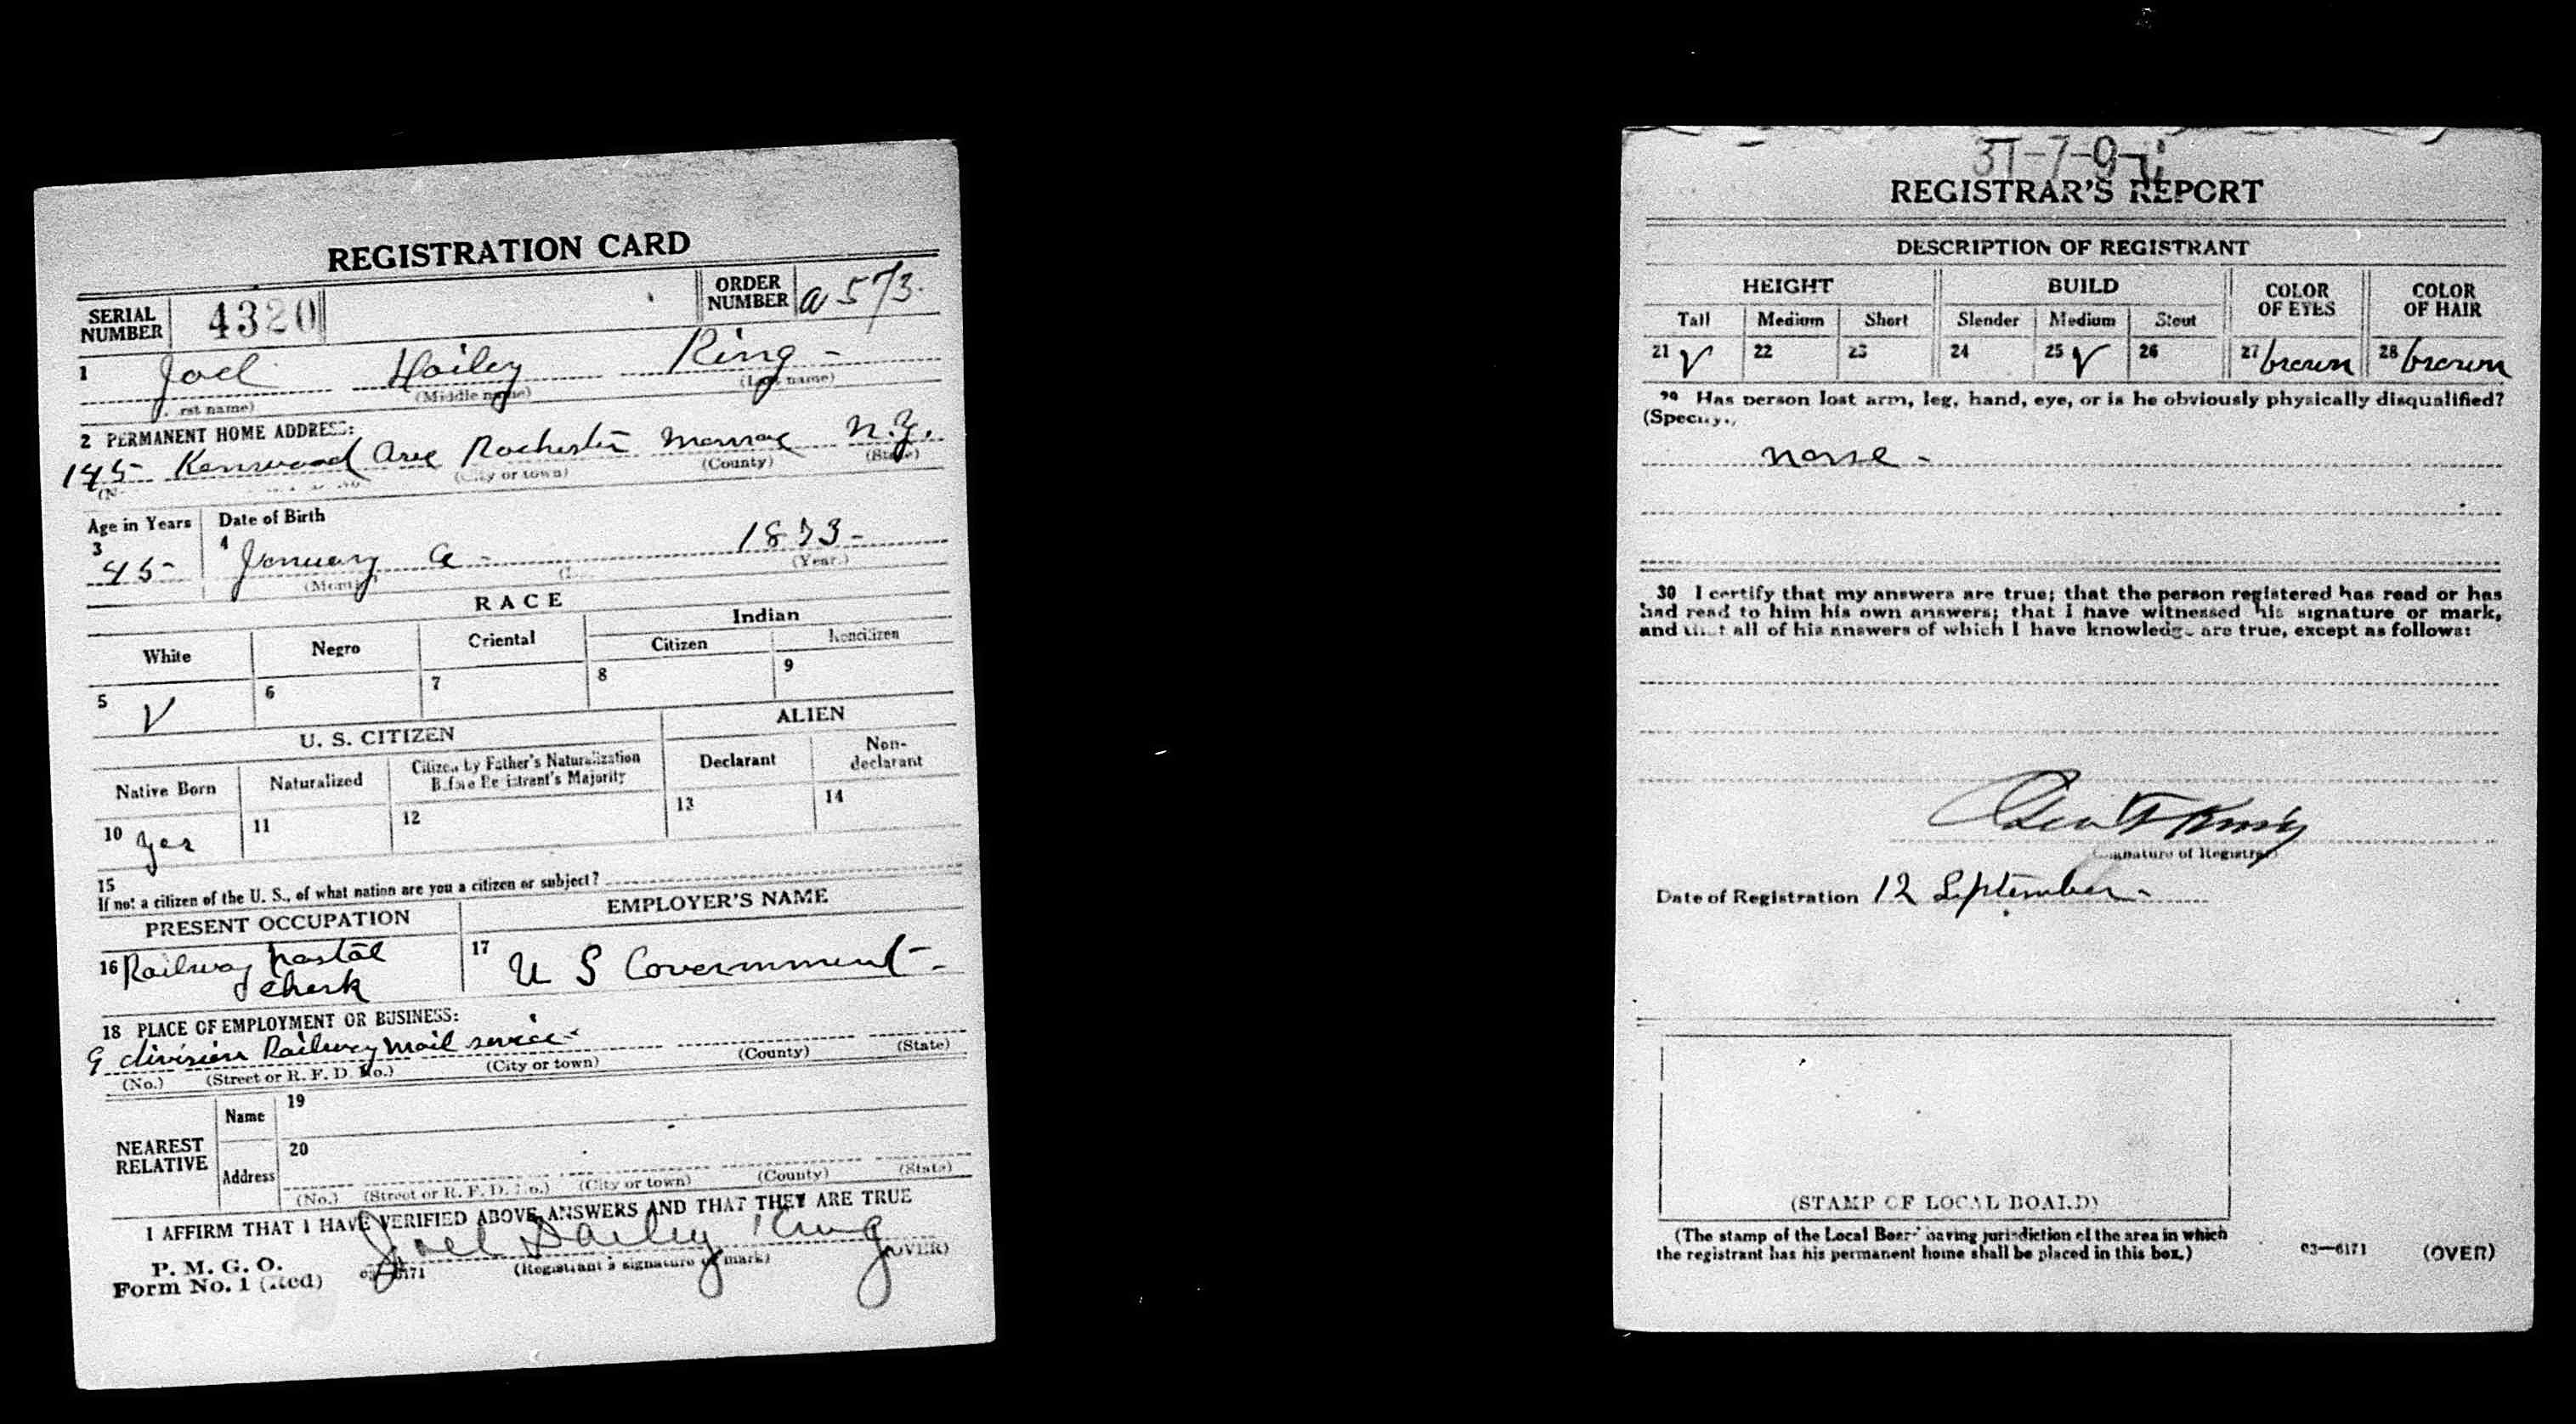 REGISTRATION CARD
SERIAL NUMBER 4320 ORDER NUMBER a 573.
1 Joel Hailey King -
rst name) (Middle name) (Last name)
2 PERMANENT HOME ADDRESS:
145- Kenwood Ave Rochester Monroe N.Y.
(City or town) (County) (State)
Age in Years Date of Birth
3 45- 4 January 1873-
(Month) (Year.)
RACE
White Negro Oriental Indian
Citizen Noncitizen
5 V 6 7 8 9
U. S. CITIZEN ALIEN
Native Born Naturalized Citizen by Father's Naturalization Before Registrant's Majority Declarant Non-declarant
10 yes 11 12 13 14
15
If not a citizen of the U. S., of what nation are you a citizen or subject?
PRESENT OCCUPATION EMPLOYER'S NAME
16 Railway postal clerk 17 U S Government -
18 PLACE OF EMPLOYMENT OR BUSINESS:
9 division Railway mail service -
(No.) (Street or R. F. D. No.) (City or town) (County) (State)
NEAREST RELATIVE
Name 19
Address 20
(No.) (Street or R. F. D. No.) (City or town) (County) (State)
I AFFIRM THAT I HAVE VERIFIED ABOVE ANSWERS AND THAT THEY ARE TRUE
P. M. G. O.
Form No. 1 (Red) 03—6171 Joel Hailey King
(Registrant's signature or mark) (OVER)
REGISTRAR'S REPORT
DESCRIPTION OF REGISTRANT
HEIGHT BUILD COLOR OF EYES COLOR OF HAIR
Tall Medium Short Slender Medium Stout
21 V 22 23 24 25 V 26 27 brown 28 brown
29 Has person lost arm, leg, hand, eye, or is he obviously physically disqualified?
(Specify.)
none -
30 I certify that my answers are true; that the person registered has read or has
had read to him his own answers; that I have witnessed his signature or mark,
and that all of his answers of which I have knowledge are true, except as follows:
(Signature of Registrar)
Date of Registration 12 September -
(STAMP OF LOCAL BOARD)
(The stamp of the Local Board having jurisdiction of the area in which
the registrant has his permanent home shall be placed in this box.)
03—6171 (OVER)